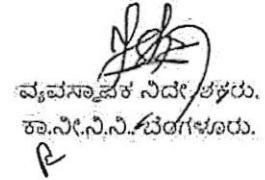 ವ್ಯವಸ್ಥಾಪಕ ನಿರ್ದೇಶಕರು.
ಕಾ.ನೀ.ನಿ.ನಿ., ಬೆಂಗಳೂರು.